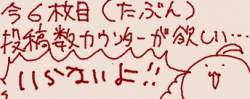 今6枚目(たぶん)
投稿数カウンターが欲しい…
いらないよ!!